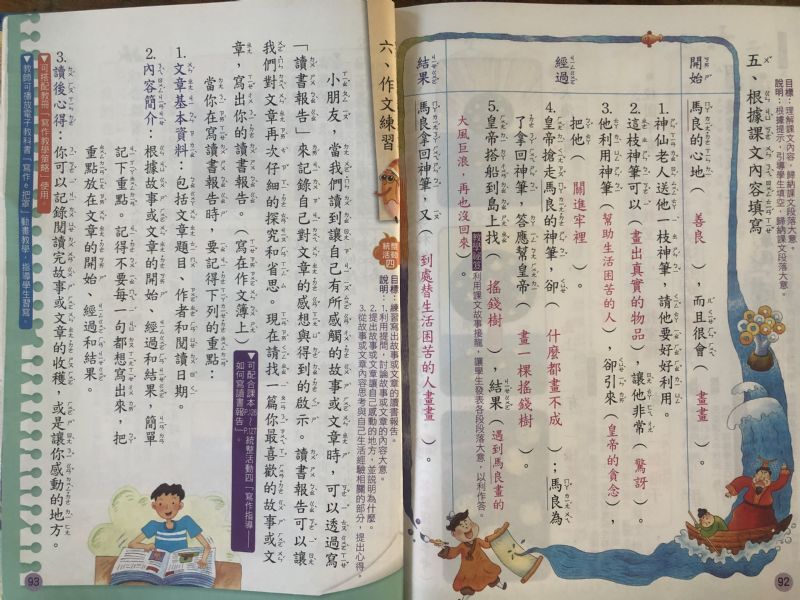 五、根據課文內容填寫
目標：理解課文內容，歸納課文段落大意。
說明：根據提示，引導學生填空，歸納課文段落大意。
開始
馬良的心地（善良），而且很會（畫畫）。
經過
1.神仙老人送他一枝神筆，請他要好好利用。
2.這枝神筆可以（畫出真實的物品），讓他非常（驚訝）。
3.他利用神筆（幫助生活困苦的人），卻引來（皇帝的貪念），
把他（關進牢裡）。
4.皇帝搶走馬良的神筆，卻（什麼都畫不成）；馬良為
了拿回神筆，答應幫皇帝（畫一棵搖錢樹）。
5.皇帝搭船到島上找（搖錢樹），結果（遇到馬良畫的
大風巨浪，再也沒回來）。
利用課文故事接龍，讓學生發表各段段落大意，以利作答。
結果
馬良拿回神筆，又（到處替生活困苦的人畫畫）。
92
六、作文練習
統整活動四
目標：練習寫出故事或文章的讀書報告。
說明：1.利用提問，討論故事或文章的內容大意。
2.提出故事或文章讓自己感動的地方，並說明為什麼。
3.從故事或文章內容思考與自己生活經驗相關的部分，提出心得。
小朋友，當我們讀到讓自己有所感觸的故事或文章時，可以透過寫
「讀書報告」來記錄自己對文章的感想與得到的啟示。讀書報告可以讓
我們對文章再次仔細的探究和省思。現在請找一篇你最喜歡的故事或文
章，寫出你的讀書報告。（寫在作文簿上）
▼可配合課本P.126～P.127統整活動四「寫作指導——
如何寫讀書報告」。
當你在寫讀書報告時，要記得下列的重點：
1.文章基本資料：包括文章題目、作者和閱讀日期。
2.內容簡介：根據故事或文章的開始、經過和結果，簡單
記下重點。記得不要每一句都想寫出來，把
重點放在文章的開始、經過和結果。
3.讀後心得：你可以記錄閱讀完故事或文章的收穫，或是讓你感動的地方。
▼可搭配教冊「寫作教學策略」使用。
▼教師可播放電子教科書「寫作e把罩」動畫教學，指導學生習寫。
93